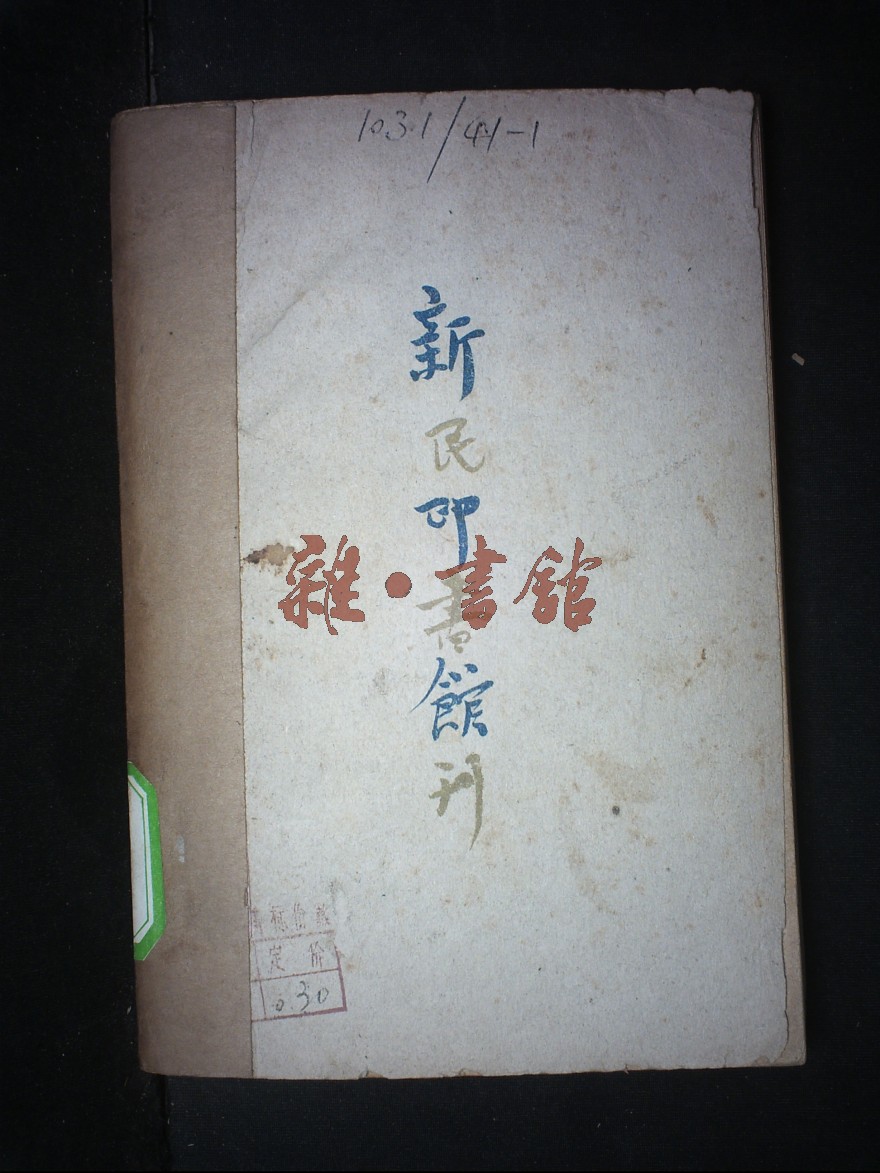 1031/41-1
新民印書館刊
雜·書館
定价
0.30